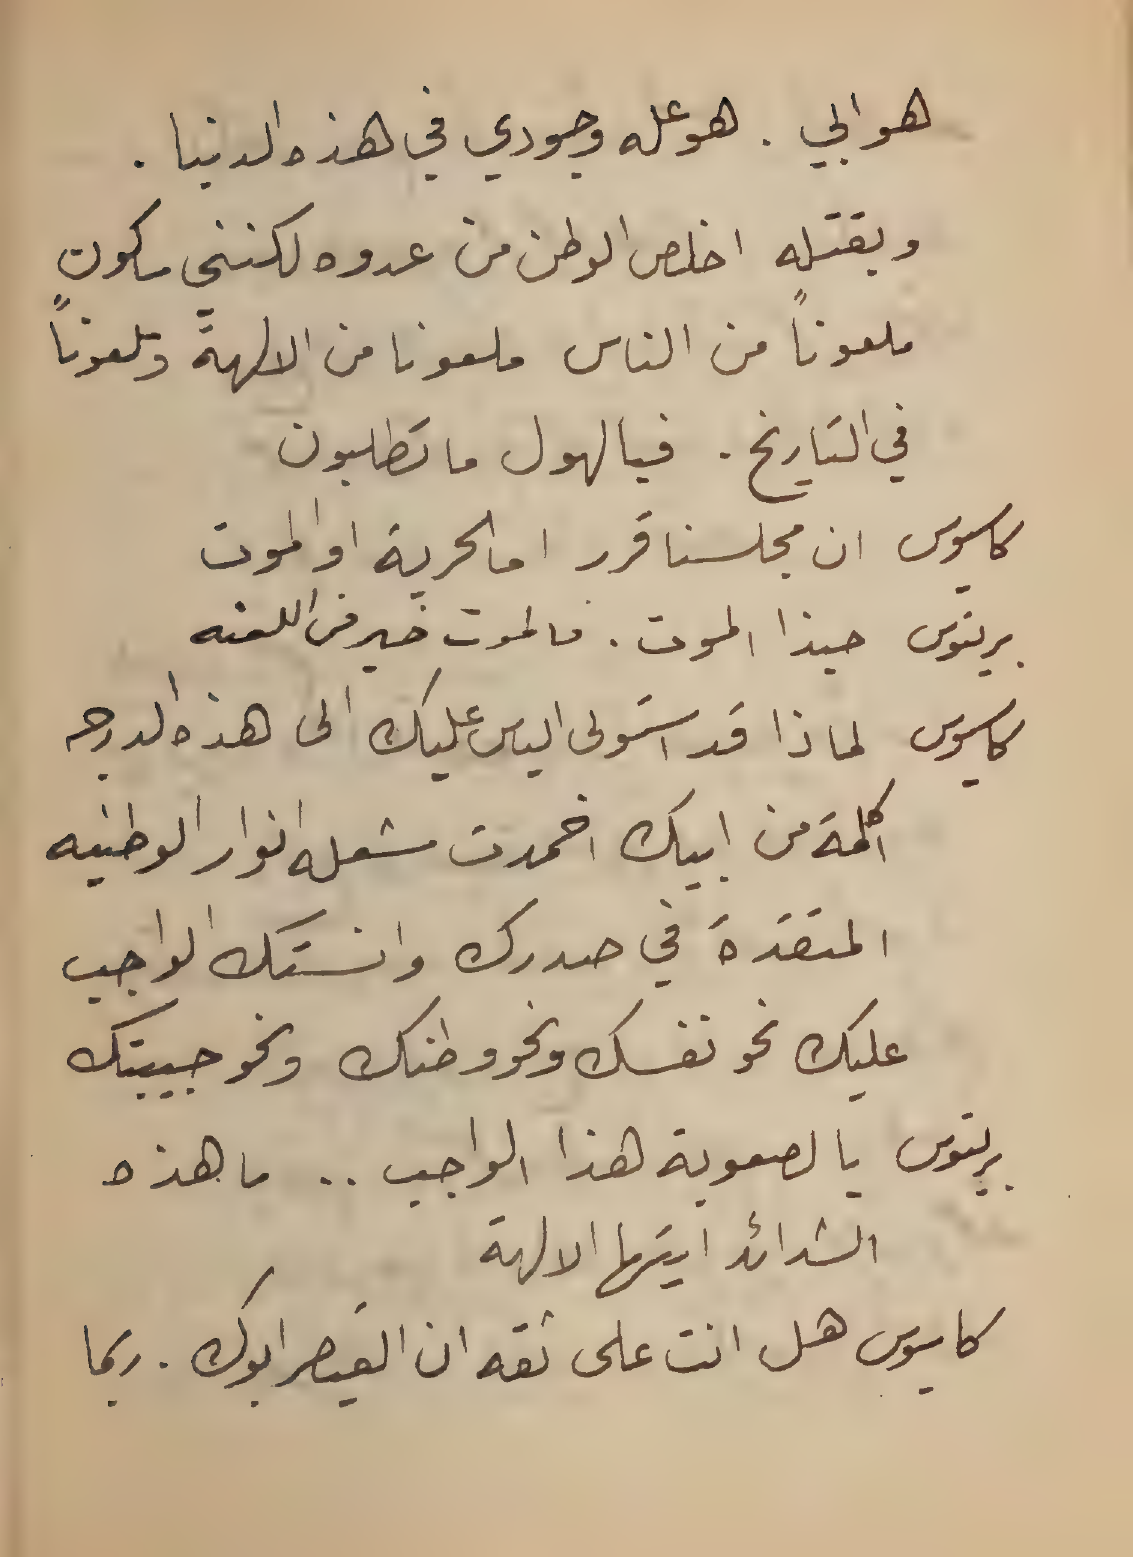 هو ابي . هو عله وجودي في هذه الدنيا .
وبقتله اخلص الوطن من عدوه لكنني ساكون
ملعوناً من الناس ملعونا من الالهة وملعوناً
في التاريخ . فيا لهول ما تطلبون
كاسيوس ان مجلسنا قرر اما الحرية او الموت
بريتوس حبذا الموت . فالموت خير من اللعنه
كاسيوس لماذا قد استولى الياس عليك الى هذه الدرجه
اكلمة من ابيك اخمدت مشعله انوار الوطنيه
المتقدة في صدرك وانستك الواجب
عليك نحو نفسك ونحو وطنك ونحو حبيبتك
بريتوس يا لصعوبة هذا الواجب .. ما هذه
الشدائد ايتها الالهة
كاسيوس هل انت على ثقه ان القيصر ابوك . ربما